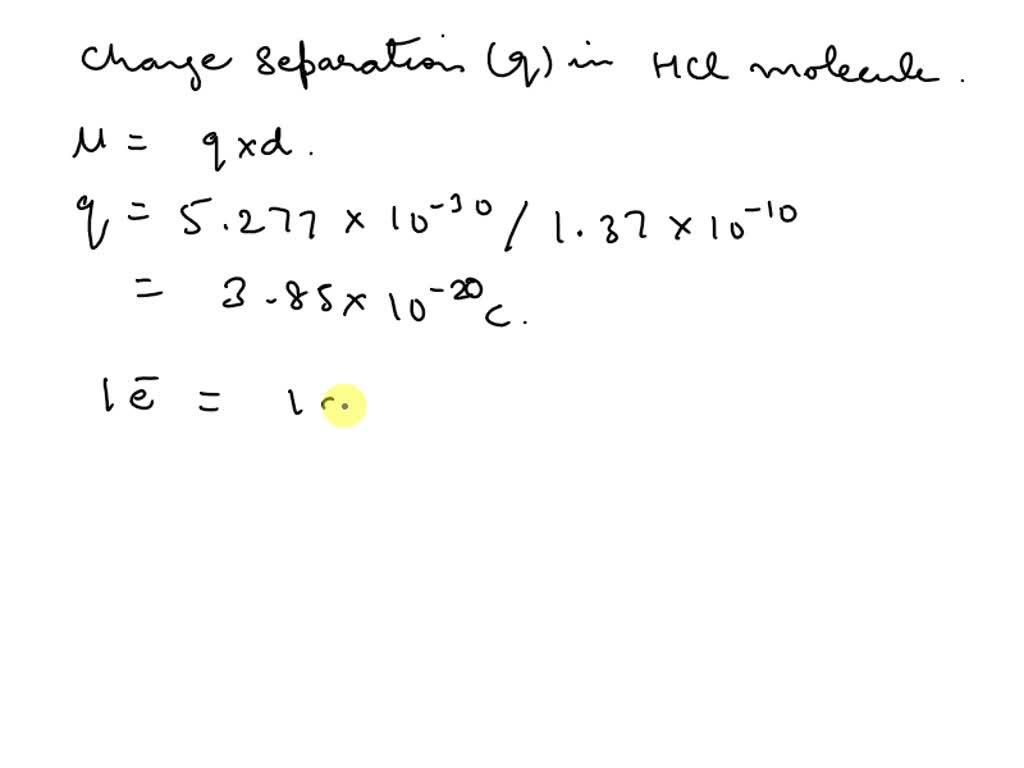 Charge Separation (q) in HCl molecule.
μ = q x d.
q = 5.277 x 10⁻³⁰ / 1.37 x 10⁻¹⁰
= 3.85 x 10⁻²⁰ C.
1 ē = 1